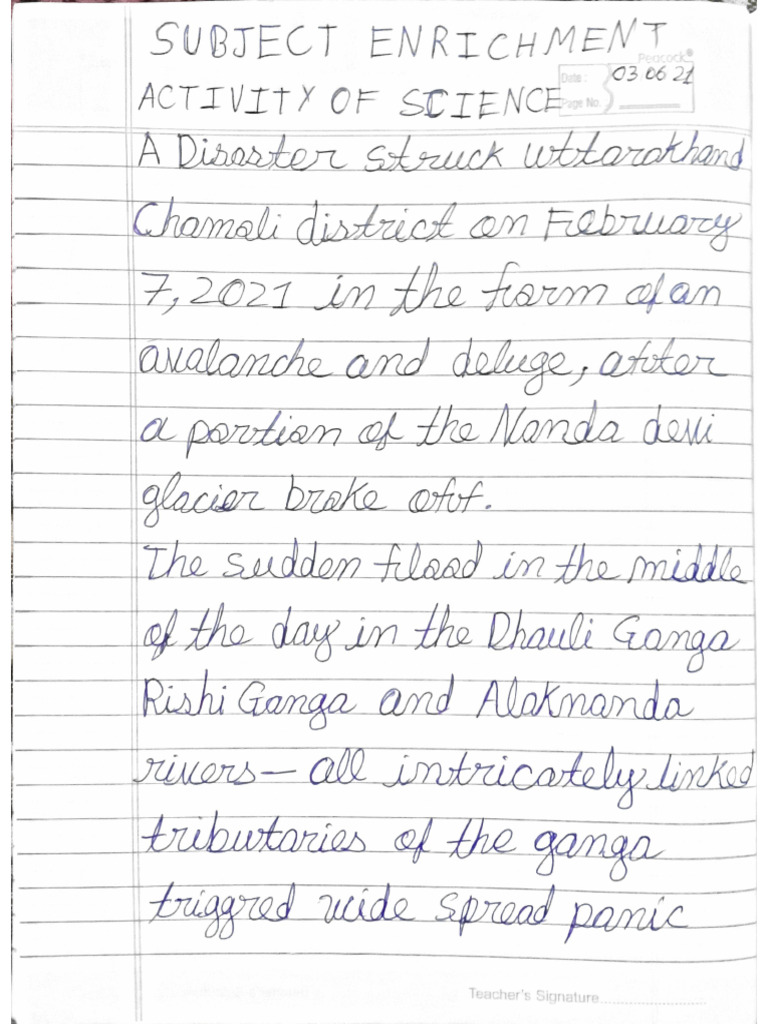 SUBJECT ENRICHMENT
Peacock®
Date: 03 06 21
ACTIVITY OF SCIENCE
Page No.
A Disaster struck uttarakhand
Chamoli district on February
7, 2021 in the form of an
avalanche and deluge, after
a portion of the Nanda devi
glacier broke off.
The sudden flood in the middle
of the day in the Dhauli Ganga
Rishi Ganga and Alaknanda
rivers — all intricately linked
tributaries of the ganga
triggred wide spread panic
Teacher's Signature